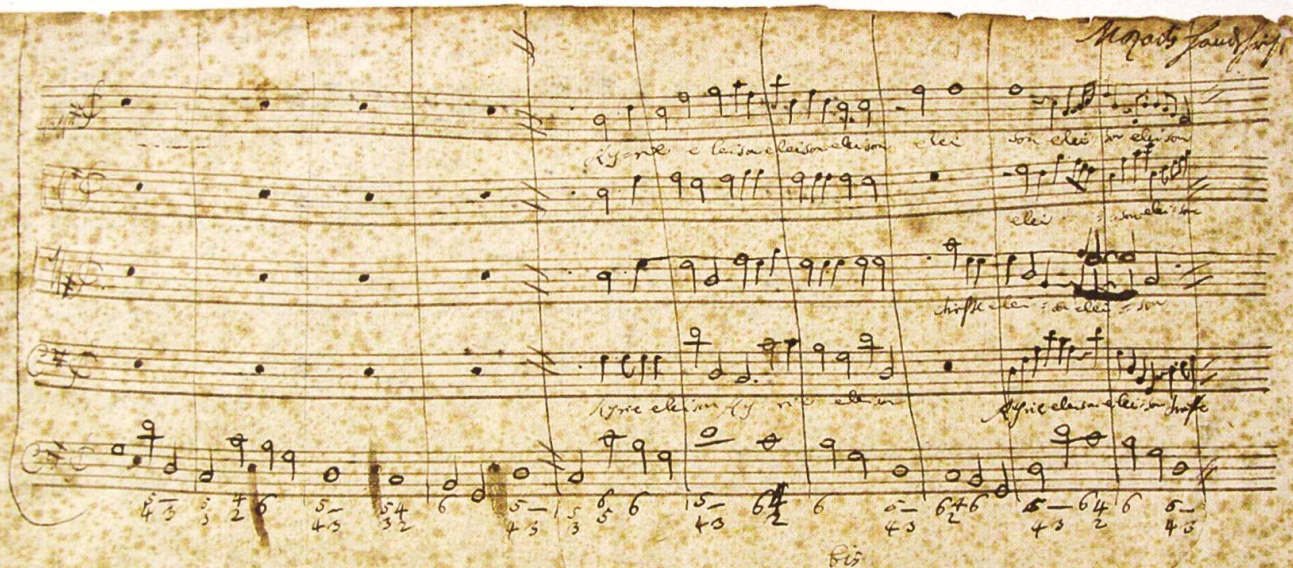 Mozarts Handschrift
Kyrie eleison eleison eleison elei son elei son eleison
elei son eleison
christe elei son elei son
Kyrie eleison Ky rie eleison Kyrie eleison eleison christe
5 4 – 3 5 3 4 2 6 5 4 – 3 5 3 4 2 6 5 4 – 3 5 3 6 5 6 5 4 – 3 6 4 2 6 5 4 – 3 6 4 2 6 5 4 – 3 6 4 2 6 5 4 – 3
bis